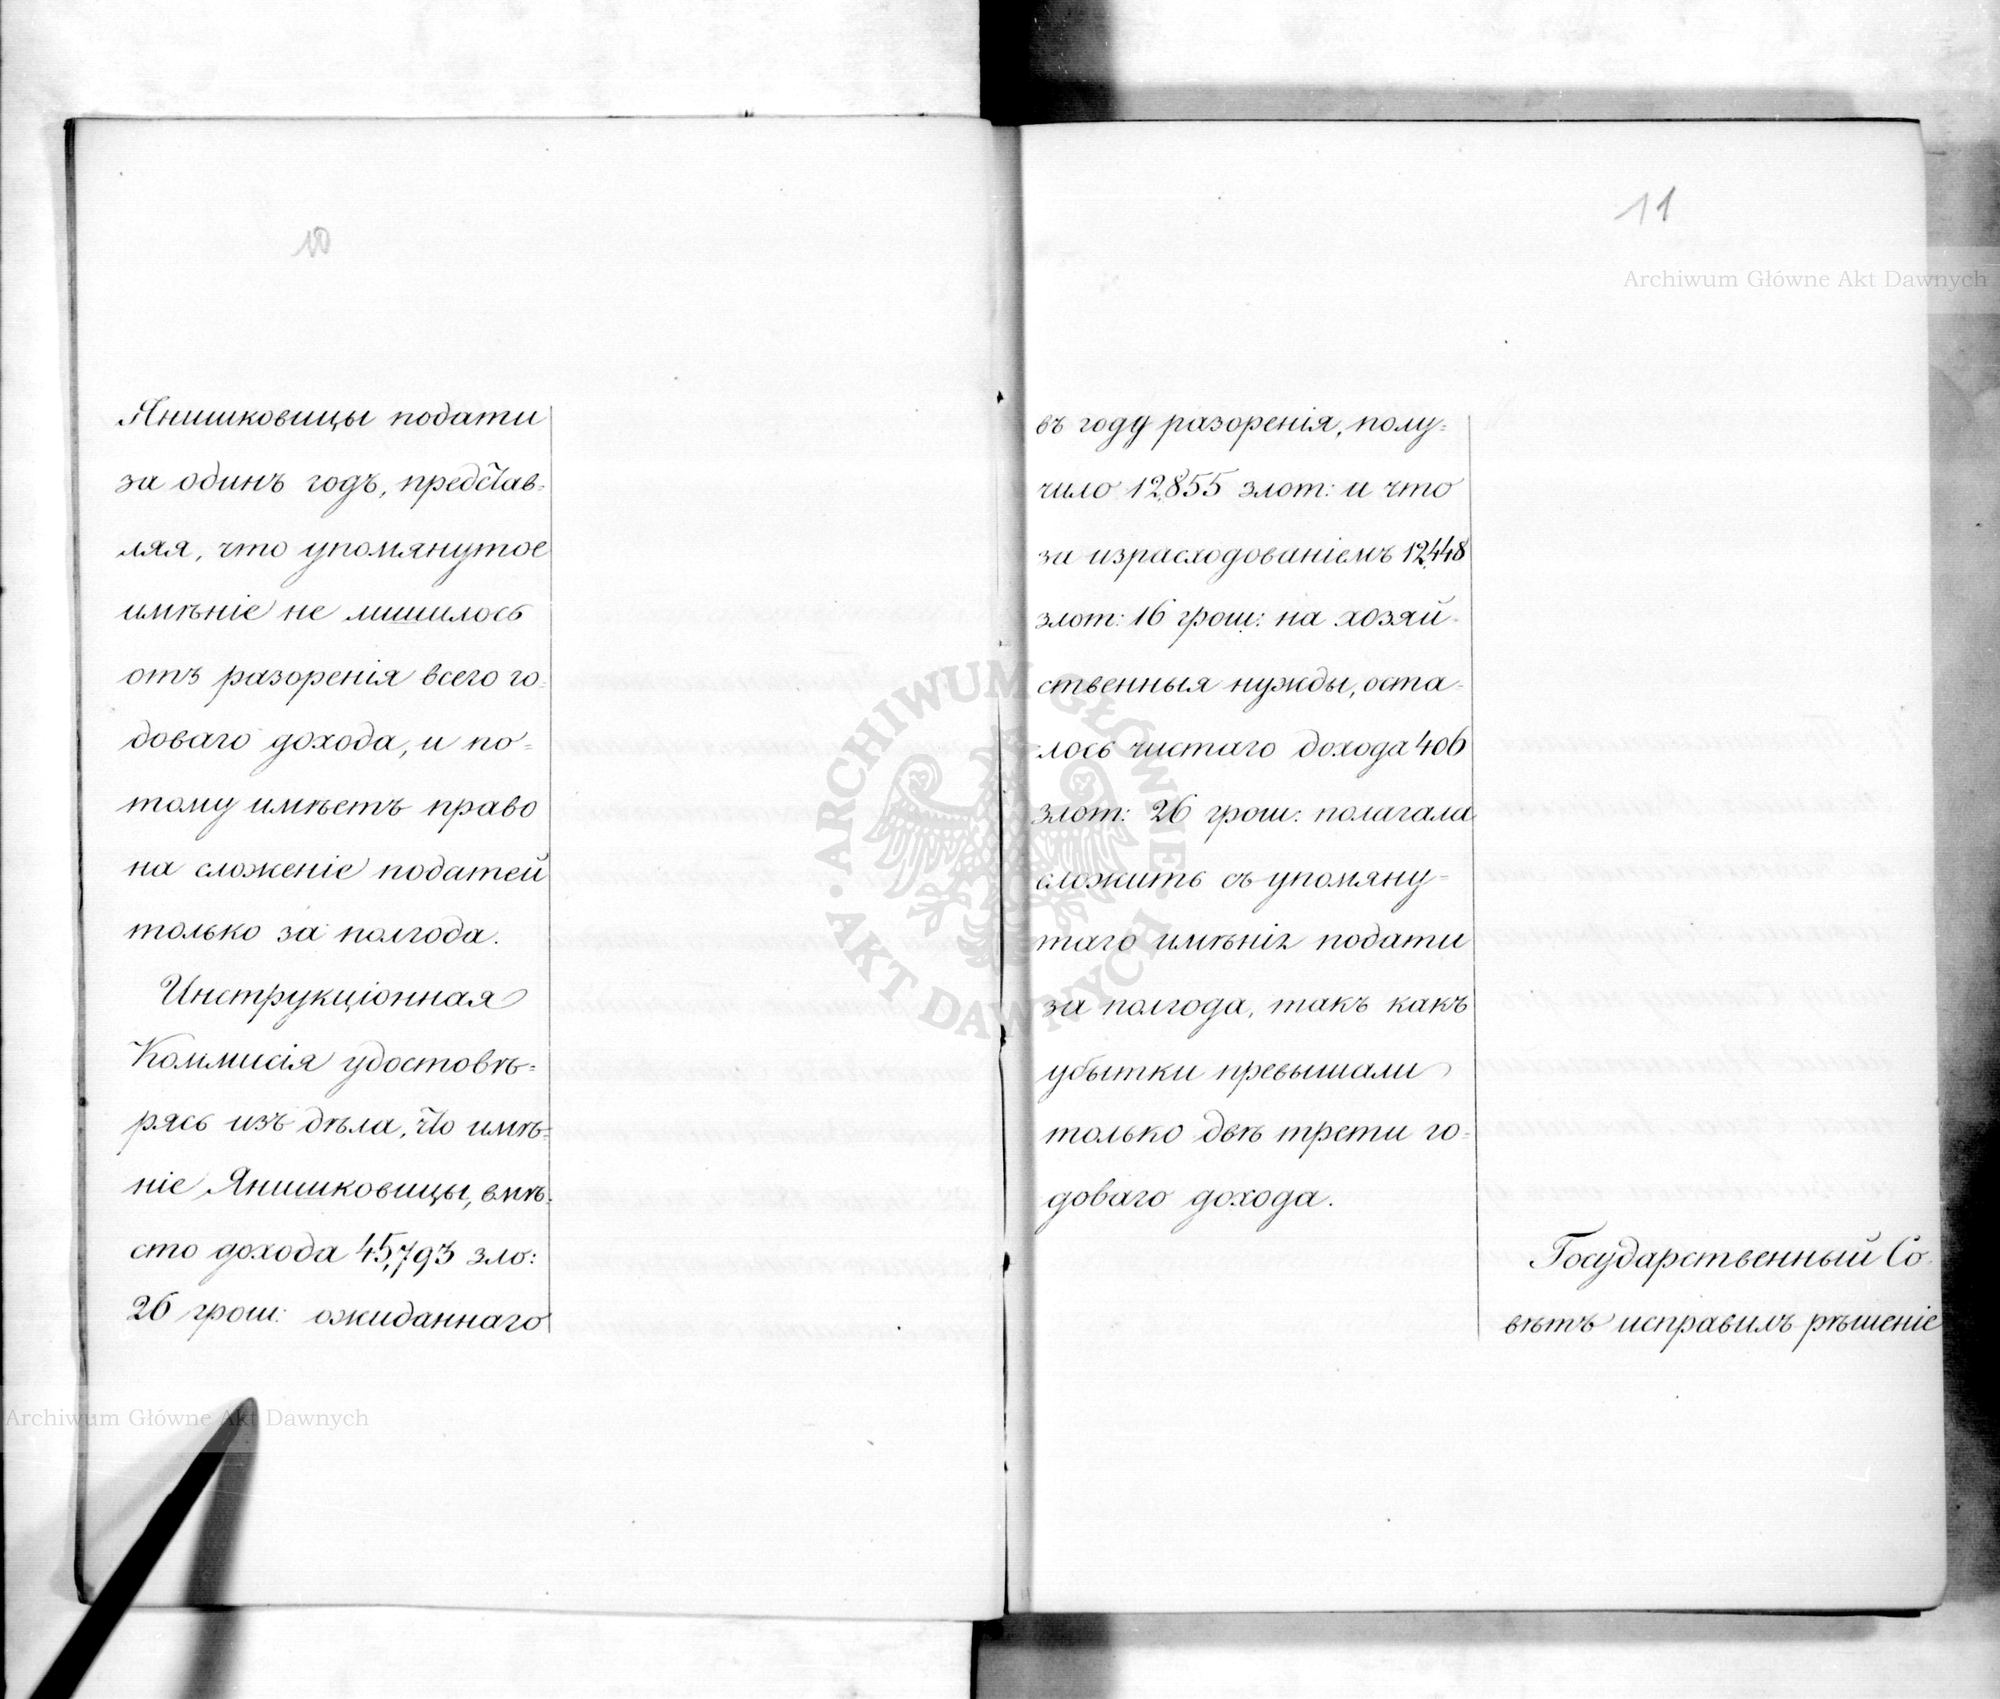 10
Янишковицы подати
за одинъ годъ, представ-
ляя, что упомянутое
имѣніе не лишилось
отъ разоренія всего го-
доваго дохода, и по-
тому имѣетъ право
на сложеніе податей
только за полгода.
Инструкціонная
Коммисія удостовѣ-
рясь изъ дѣла, что имѣ-
ніе Янишковицы, вмѣ-
сто дохода 45,793 зло:
26 грош: ожиданнаго
11
въ году разоренія, полу-
чило 12,855 злот: и что
за израсходованіемъ 12,448
злот: 16 грош: на хозяй-
ственныя нужды, оста-
лось чистаго дохода 406
злот: 26 грош: полагала
сложить съ упомяну-
таго имѣнія подати
за полгода, такъ какъ
убытки превышали
только двѣ трети го-
доваго дохода.
Государственный Со-
вѣтъ исправилъ рѣшеніе
Archiwum Główne Akt Dawnych
ARCHIWUM GŁÓWNE AKT DAWNYCH
Archiwum Główne Akt Dawnych